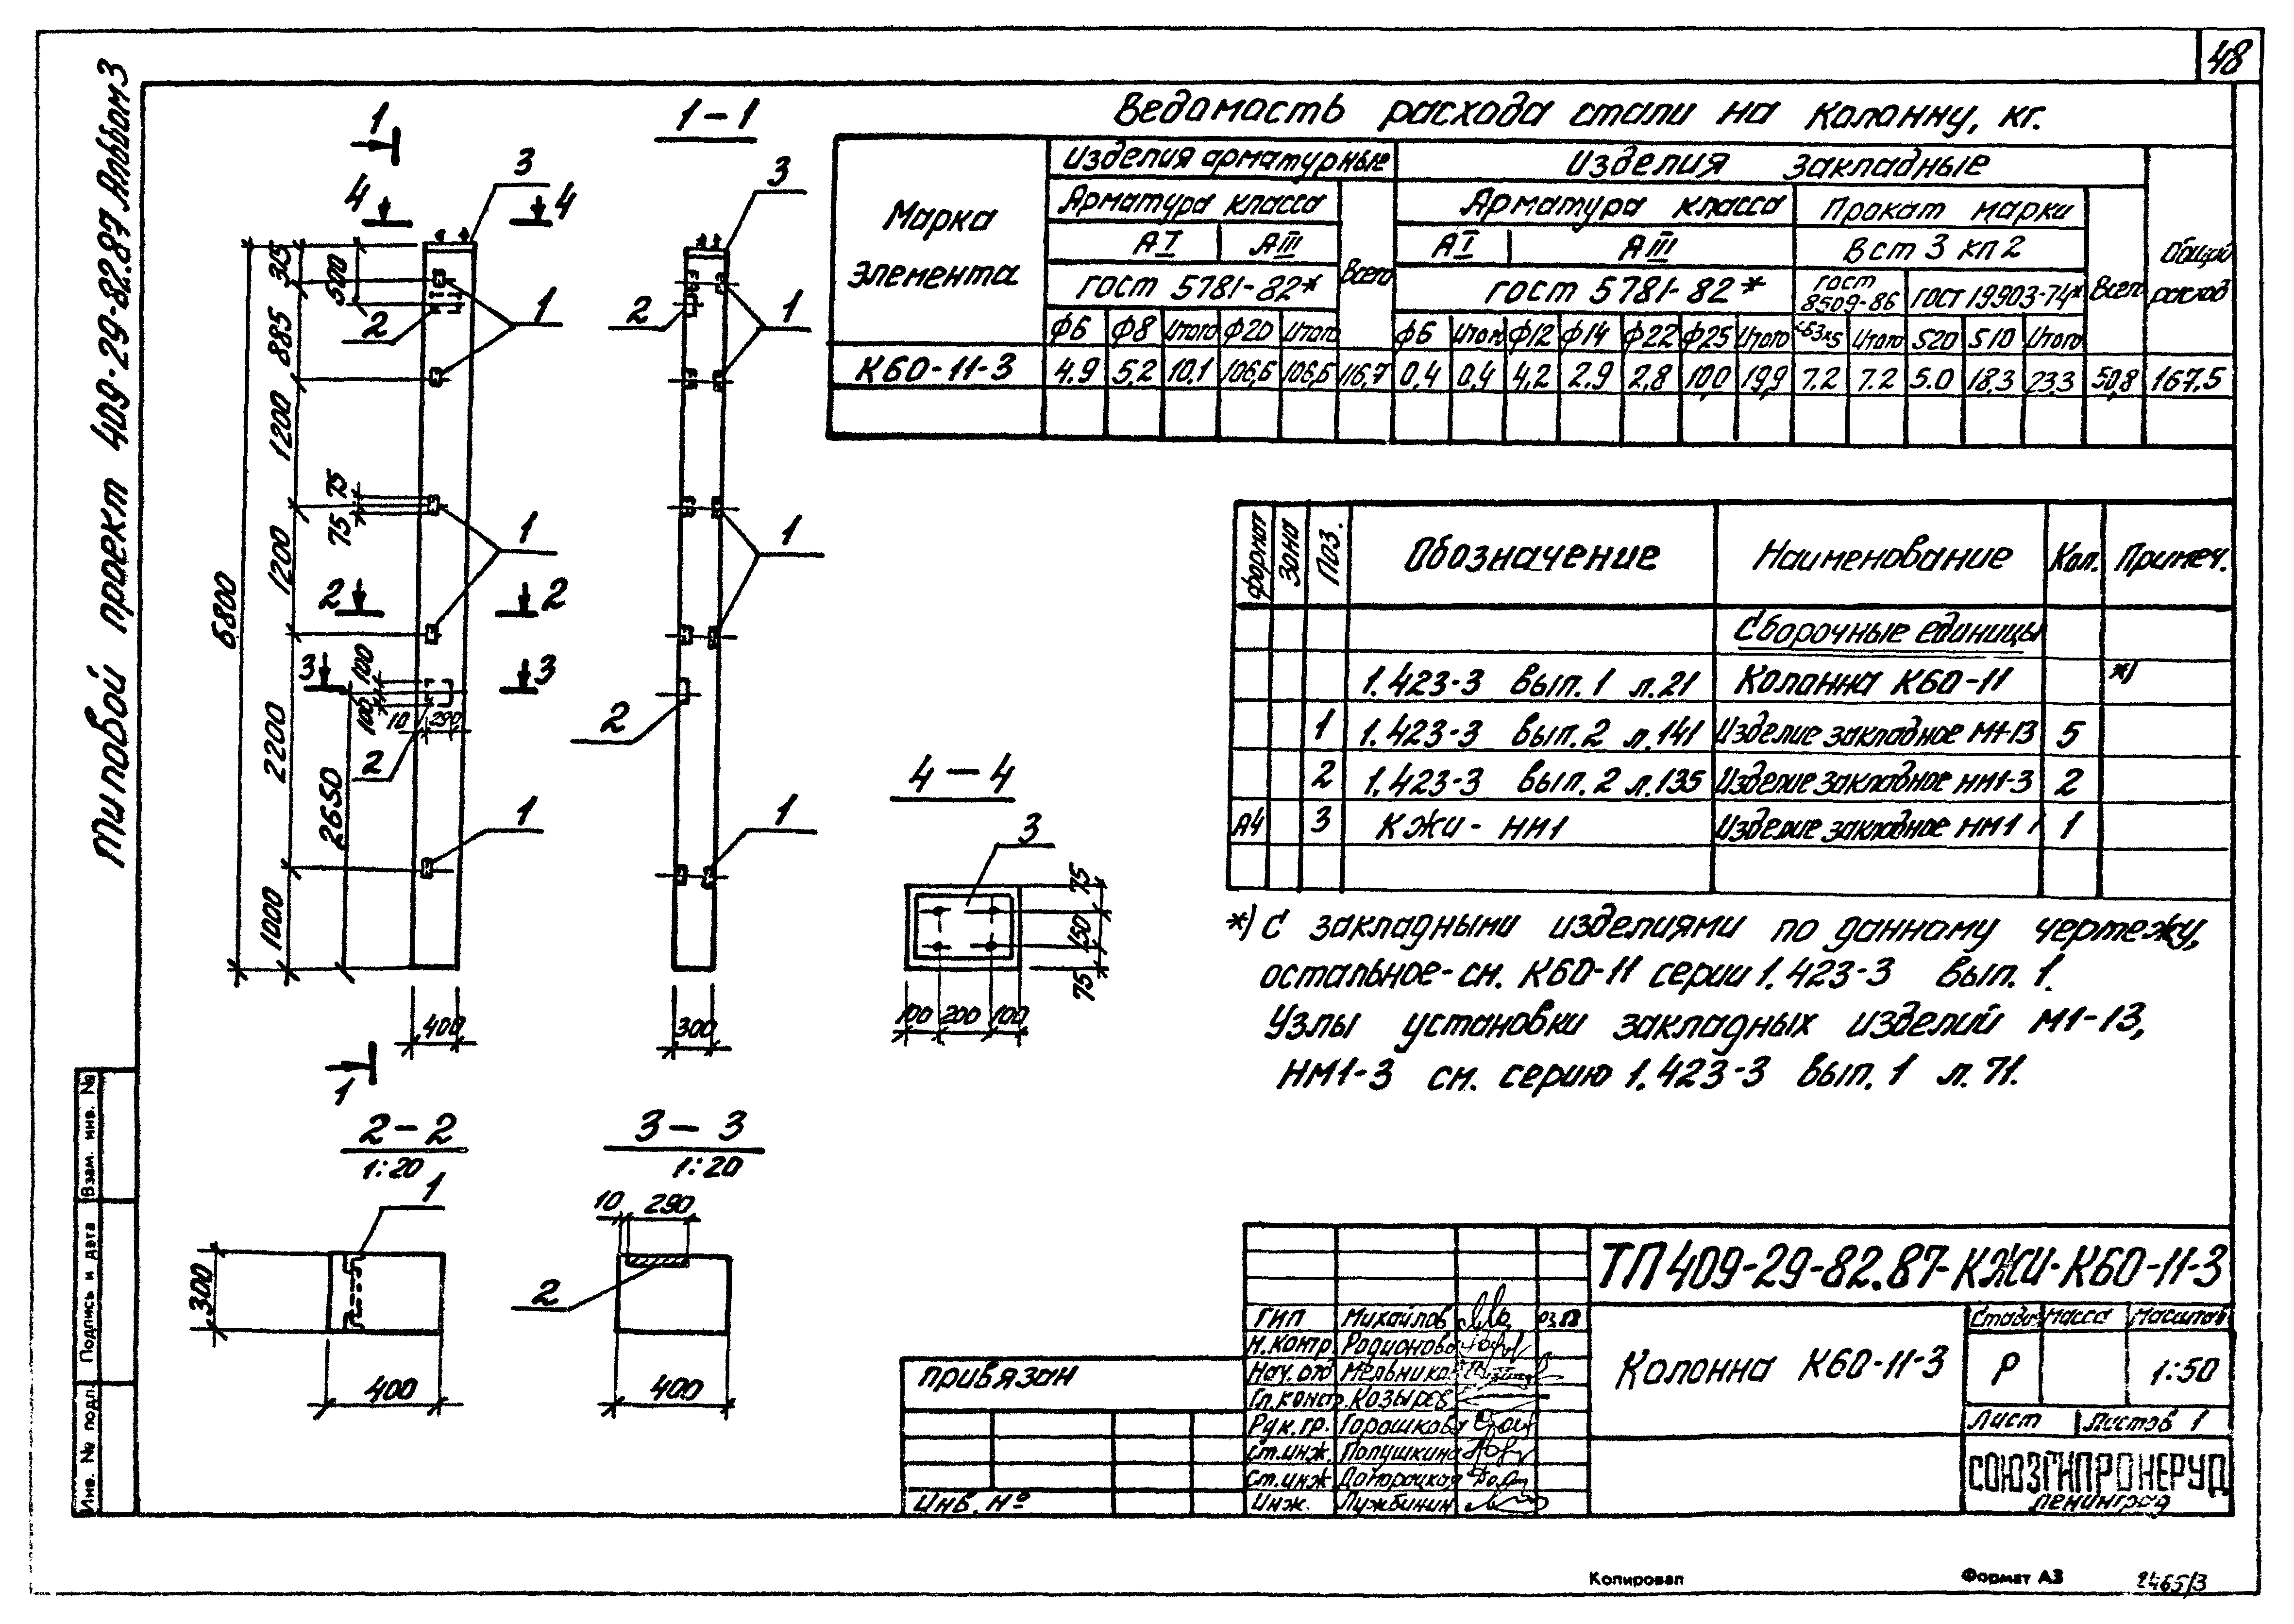 48
Типовой проект 409-29-82.87 Альбом 3
Ведомасть расхода стали на колонну, кг.
Марка элемента
Изделия арматурные
Изделия закладные
Общий расход
Арматура класса
Всего
Арматура класса
Прокат марки
Всего
АI АIII
АI АIII
Вст 3 кп 2
ГОСТ 5781-82*
ГОСТ 5781-82*
ГОСТ 8509-86
ГОСТ 19903-74*
ф6 ф8 Итого ф20 Итого ф6 Итого ф12 ф14 ф22 ф25 Итого ∟63х5 Итого S20 S10 Итого
К60-11-3 4.9 5.2 10.1 106,6 106,6 116,7 0,4 0.4 4,2 2.9 2,8 10,0 19,9 7.2 7.2 5.0 18.3 23.3 50,8 167.5
формат Зона Поз. Обозначение Наименование Кол. Примеч.
Сборочные единицы
1.423-3 вып.1 л.21 Колонна К60-11 *)
1 1.423-3 вып.2 л.141 Изделие закладное М1-13 5
2 1.423-3 вып.2 л.135 Изделие закладное НМ1-3 2
А4 3 КЖИ-НМ1 Изделие закладное НМ1 1
*) С закладными изделиями по данному чертежу,
остальное-см. К60-11 серии 1.423-3 вып. 1.
Узлы установки закладных изделий М1-13,
НМ1-3 см. серию 1.423-3 вып. 1 л. 71.
1
4 4
3
1
2
1
2 2
3 3
2
1
1
315
500
885
1200
75
75
1200
6800
100
100
10 290
2200
2650
1000
400
1-1
3
2
1
1
2
1
300
4-4
3
75
150
75
100 200 100
2-2
1:20
1
300
400
3-3
1:20
10 290
2
400
Взам. инв. №
Подпись и дата
Инв. № подл.
привязан
Инв. №
ТП 409-29-82.87-КЖИ-К60-11-3
ГИП Михайлов
Н.контр. Родионова
Нач. отд Мельников
Гл.констр. Козырев
Рук. гр. Горошкова
Ст.инж. Полушкина
Ст.инж
Инж. Лужбинин
Колонна К60-11-3
Стадия Масса Масштаб
Р 1:50
Лист Листов 1
СОЮЗГИПРОНЕРУД
Ленинград
Копировал
Формат А3
2465/3